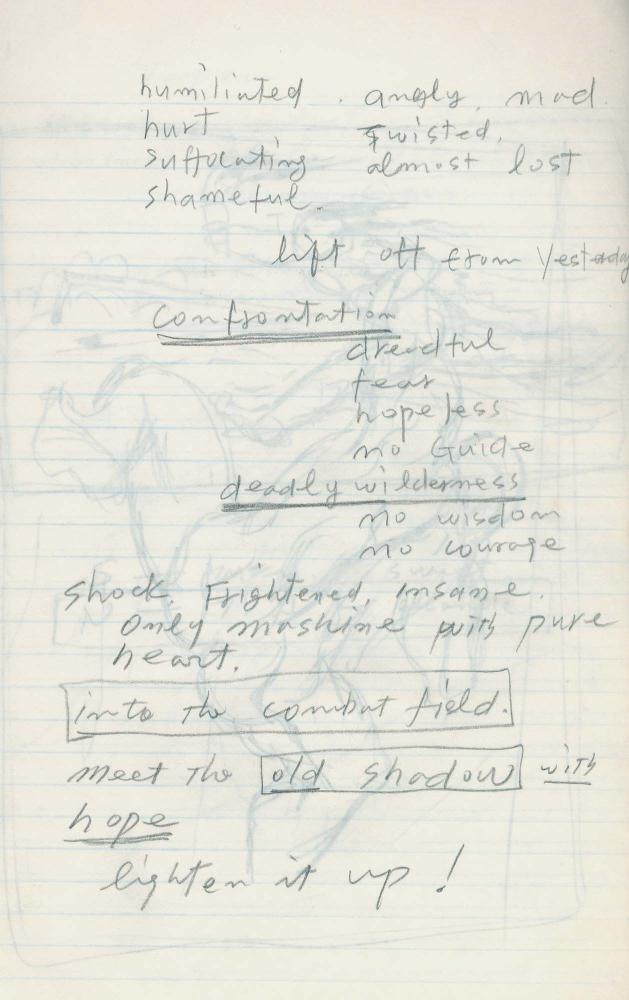 humiliated. angly, mad.
hurt twisted,
suffocating almost lost
shameful.
lift off from yesterday
confrontation
dreadful
fear
hopeless
no Guide
deadly wilderness
no wisdom
no courage
shock, Frightened, insane.
only mashine with pure
heart.
into the combat field.
meet the old shadow with
hope
lighten it up!